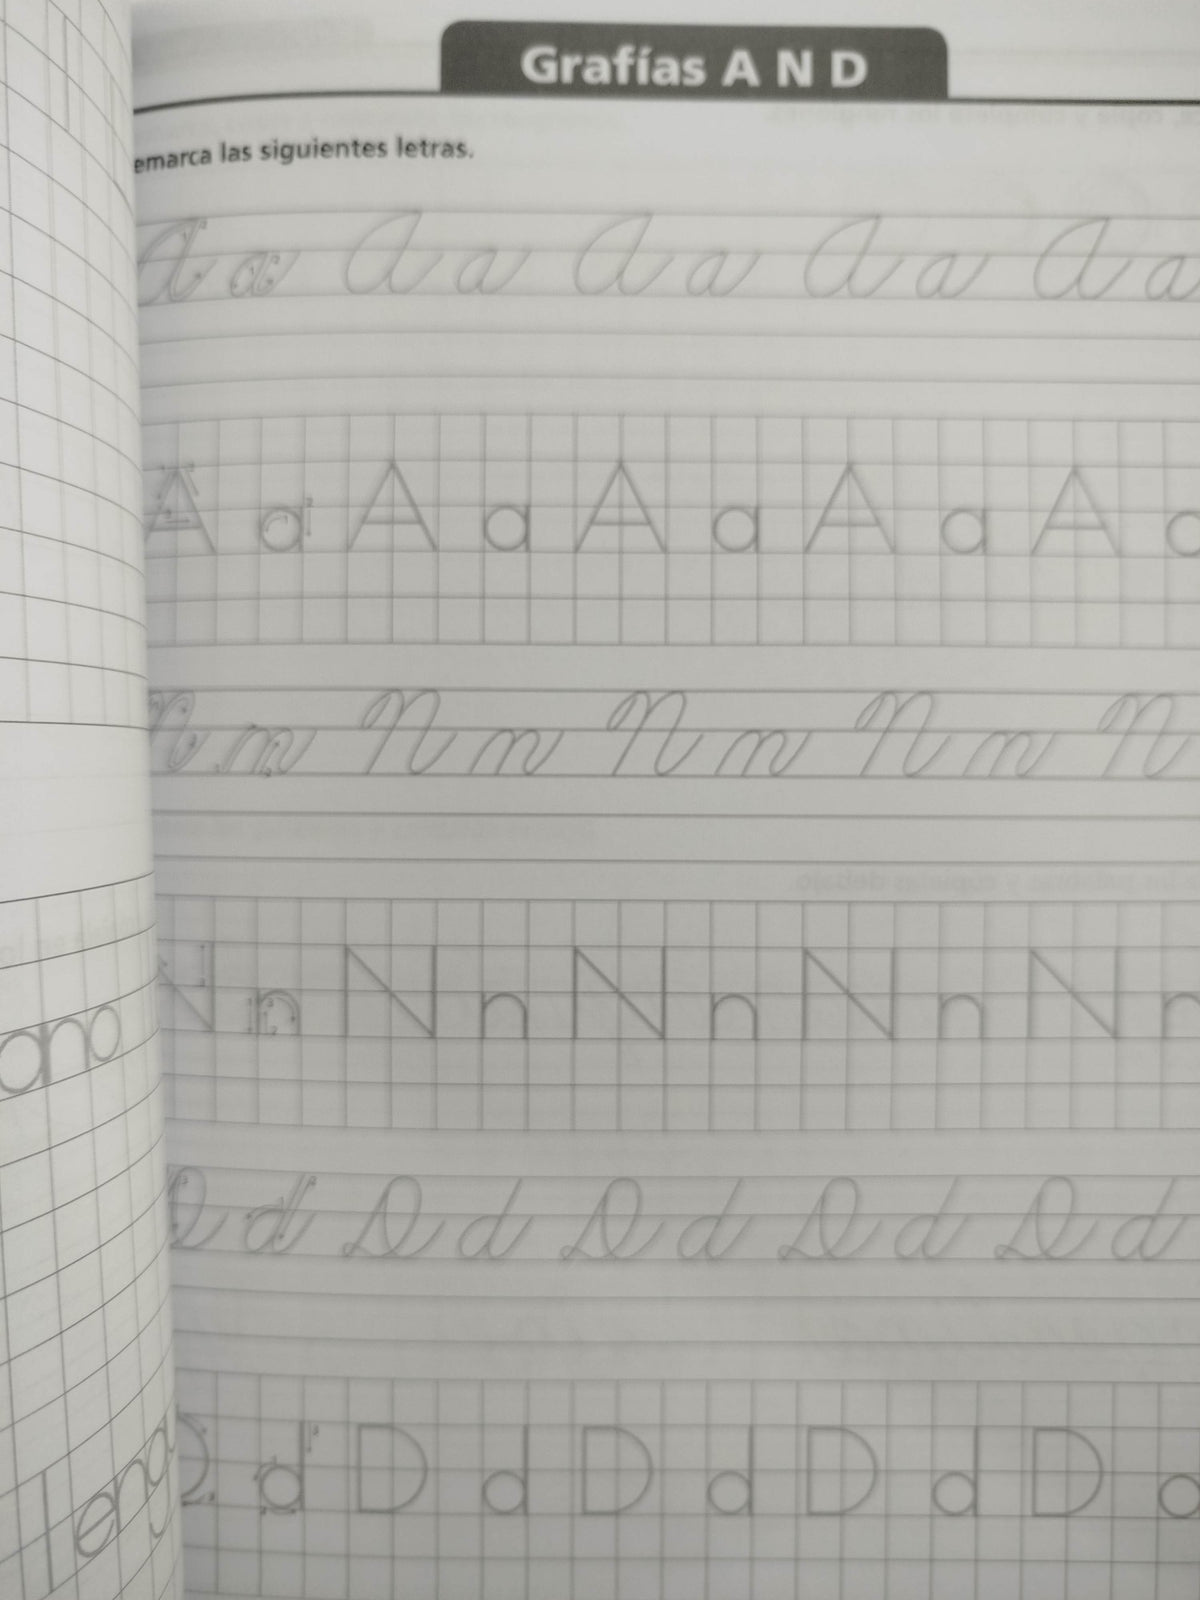 Grafías A N D
emarca las siguientes letras.
A a A a A a A a A a
A a A a A a A a A a
N n N n N n N n N
N n N n N n N n N n
ano
D d D d D d D d D d
D d D d D d D d D d
leng